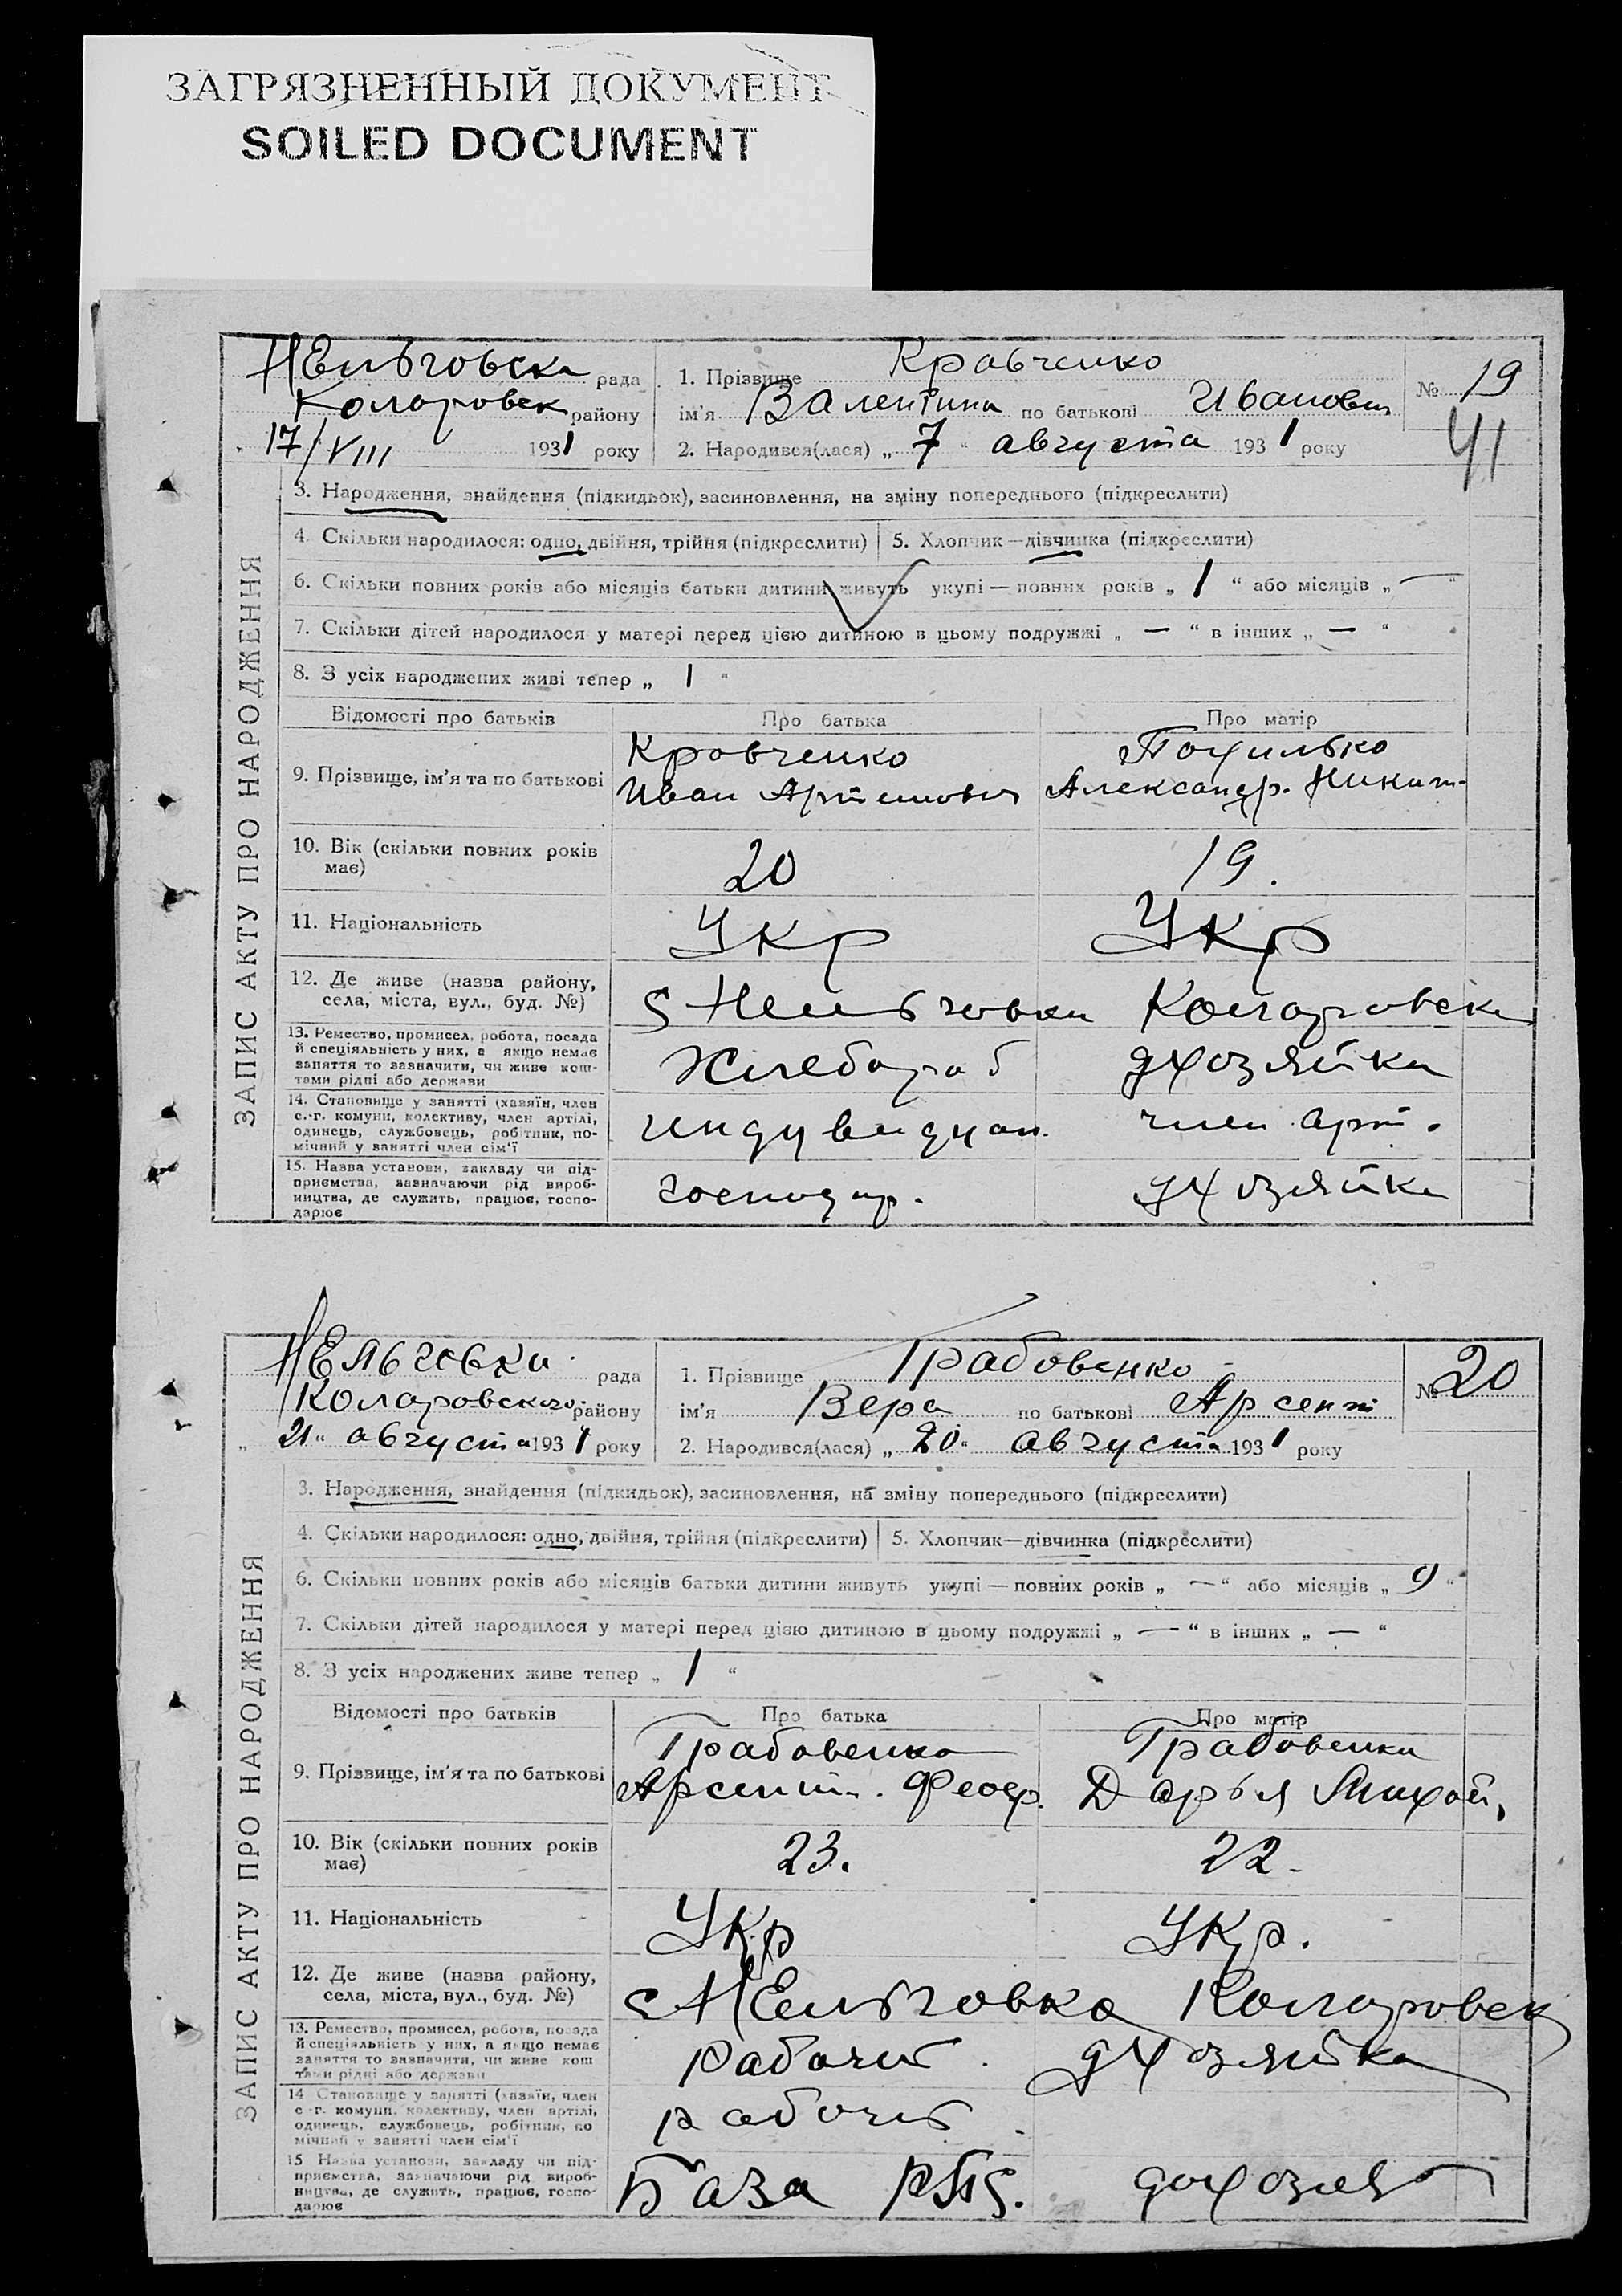 ЗАГРЯЗНЕННЫЙ ДОКУМЕНТ
SOILED DOCUMENT
Нельговска рада
Коларовск району
17/VIII 1931 року
1. Прізвище Кравченко
ім'я Валентина по батькові Ивановн
2. Народився(лася) „7“ августа 1931 року
№ 19
41
ЗАПИС АКТУ ПРО НАРОДЖЕННЯ
3. Народження, знайдення (підкидьок), засиновлення, на зміну попереднього (підкреслити)
4. Скільки народилося: одно, двійня, трійня (підкреслити)
5. Хлопчик—дівчинка (підкреслити)
6. Скільки повних років або місяців батьки дитини живуть укупі — повних років „1“ або місяців „—“
7. Скільки дітей народилося у матері перед цією дитиною в цьому подружжі „—“ в інших „—“
8. З усіх народжених живі тепер „1“
Відомості про батьків Про батька Про матір
9. Прізвище, ім'я та по батькові
Кравченко
Иван Артемович
Похилько
Александр. Никит.
10. Вік (скільки повних років
має)
20
19.
11. Національність
Укр
Укр
12. Де живе (назва району,
села, міста, вул., буд. №)
с Нельговка Коларовск
13. Ремество, промисел, робота, посада
й спеціяльність у них, а якщо немає
заняття то зазначити, чи живе кош-
тами рідні або держави
Хлебороб
дхозяйка
14. Становище у занятті (хазяїн, член
с.-г. комуни, колективу, член артілі,
одинець, службовець, робітник, по-
мічний у занятті член сім'ї
индувидуал.
член арт.
15. Назва установи, закладу чи під-
приємства, зазначаючи рід вироб-
ництва, де служить, працює, госпо-
дарює
господар.
дхозяйка
Нельговки рада
Коларовского району
„21“ августа 1931 року
1. Прізвище Грабовенко
ім'я Вера по батькові Арсент
2. Народився(лася) „20“ августа 1931 року
№ 20
ЗАПИС АКТУ ПРО НАРОДЖЕННЯ
3. Народження, знайдення (підкидьок), засиновлення, на зміну попереднього (підкреслити)
4. Скільки народилося: одно, двійня, трійня (підкреслити)
5. Хлопчик—дівчинка (підкреслити)
6. Скільки повних років або місяців батьки дитини живуть укупі — повних років „—“ або місяців „9“
7. Скільки дітей народилося у матері перед цією дитиною в цьому подружжі „—“ в інших „—“
8. З усіх народжених живе тепер „1“
Відомості про батьків Про батька Про матір
9. Прізвище, ім'я та по батькові
Грабовенко
Арсент. Феод.
Грабовенко
Дарья Михай.
10. Вік (скільки повних років
має)
23.
22.
11. Національність
Укр
Укр.
12. Де живе (назва району,
села, міста, вул., буд. №)
с Нельговка Коларовск
13. Ремество, промисел, робота, посада
й спеціяльність у них, а якщо немає
заняття то зазначити, чи живе кош
тами рідні або держави
рабочий
дхозяйка
14 Становище у занятті (хазяїн, член
с-г. комуни, колективу, член артілі,
одинець, службовець, робітник, по
мічний у занятті член сім'ї
рабочий
15 Назва установи, закладу чи під-
приємства, зазначаючи рід вироб-
ництва, де служить, працює, госпо-
дарює
База